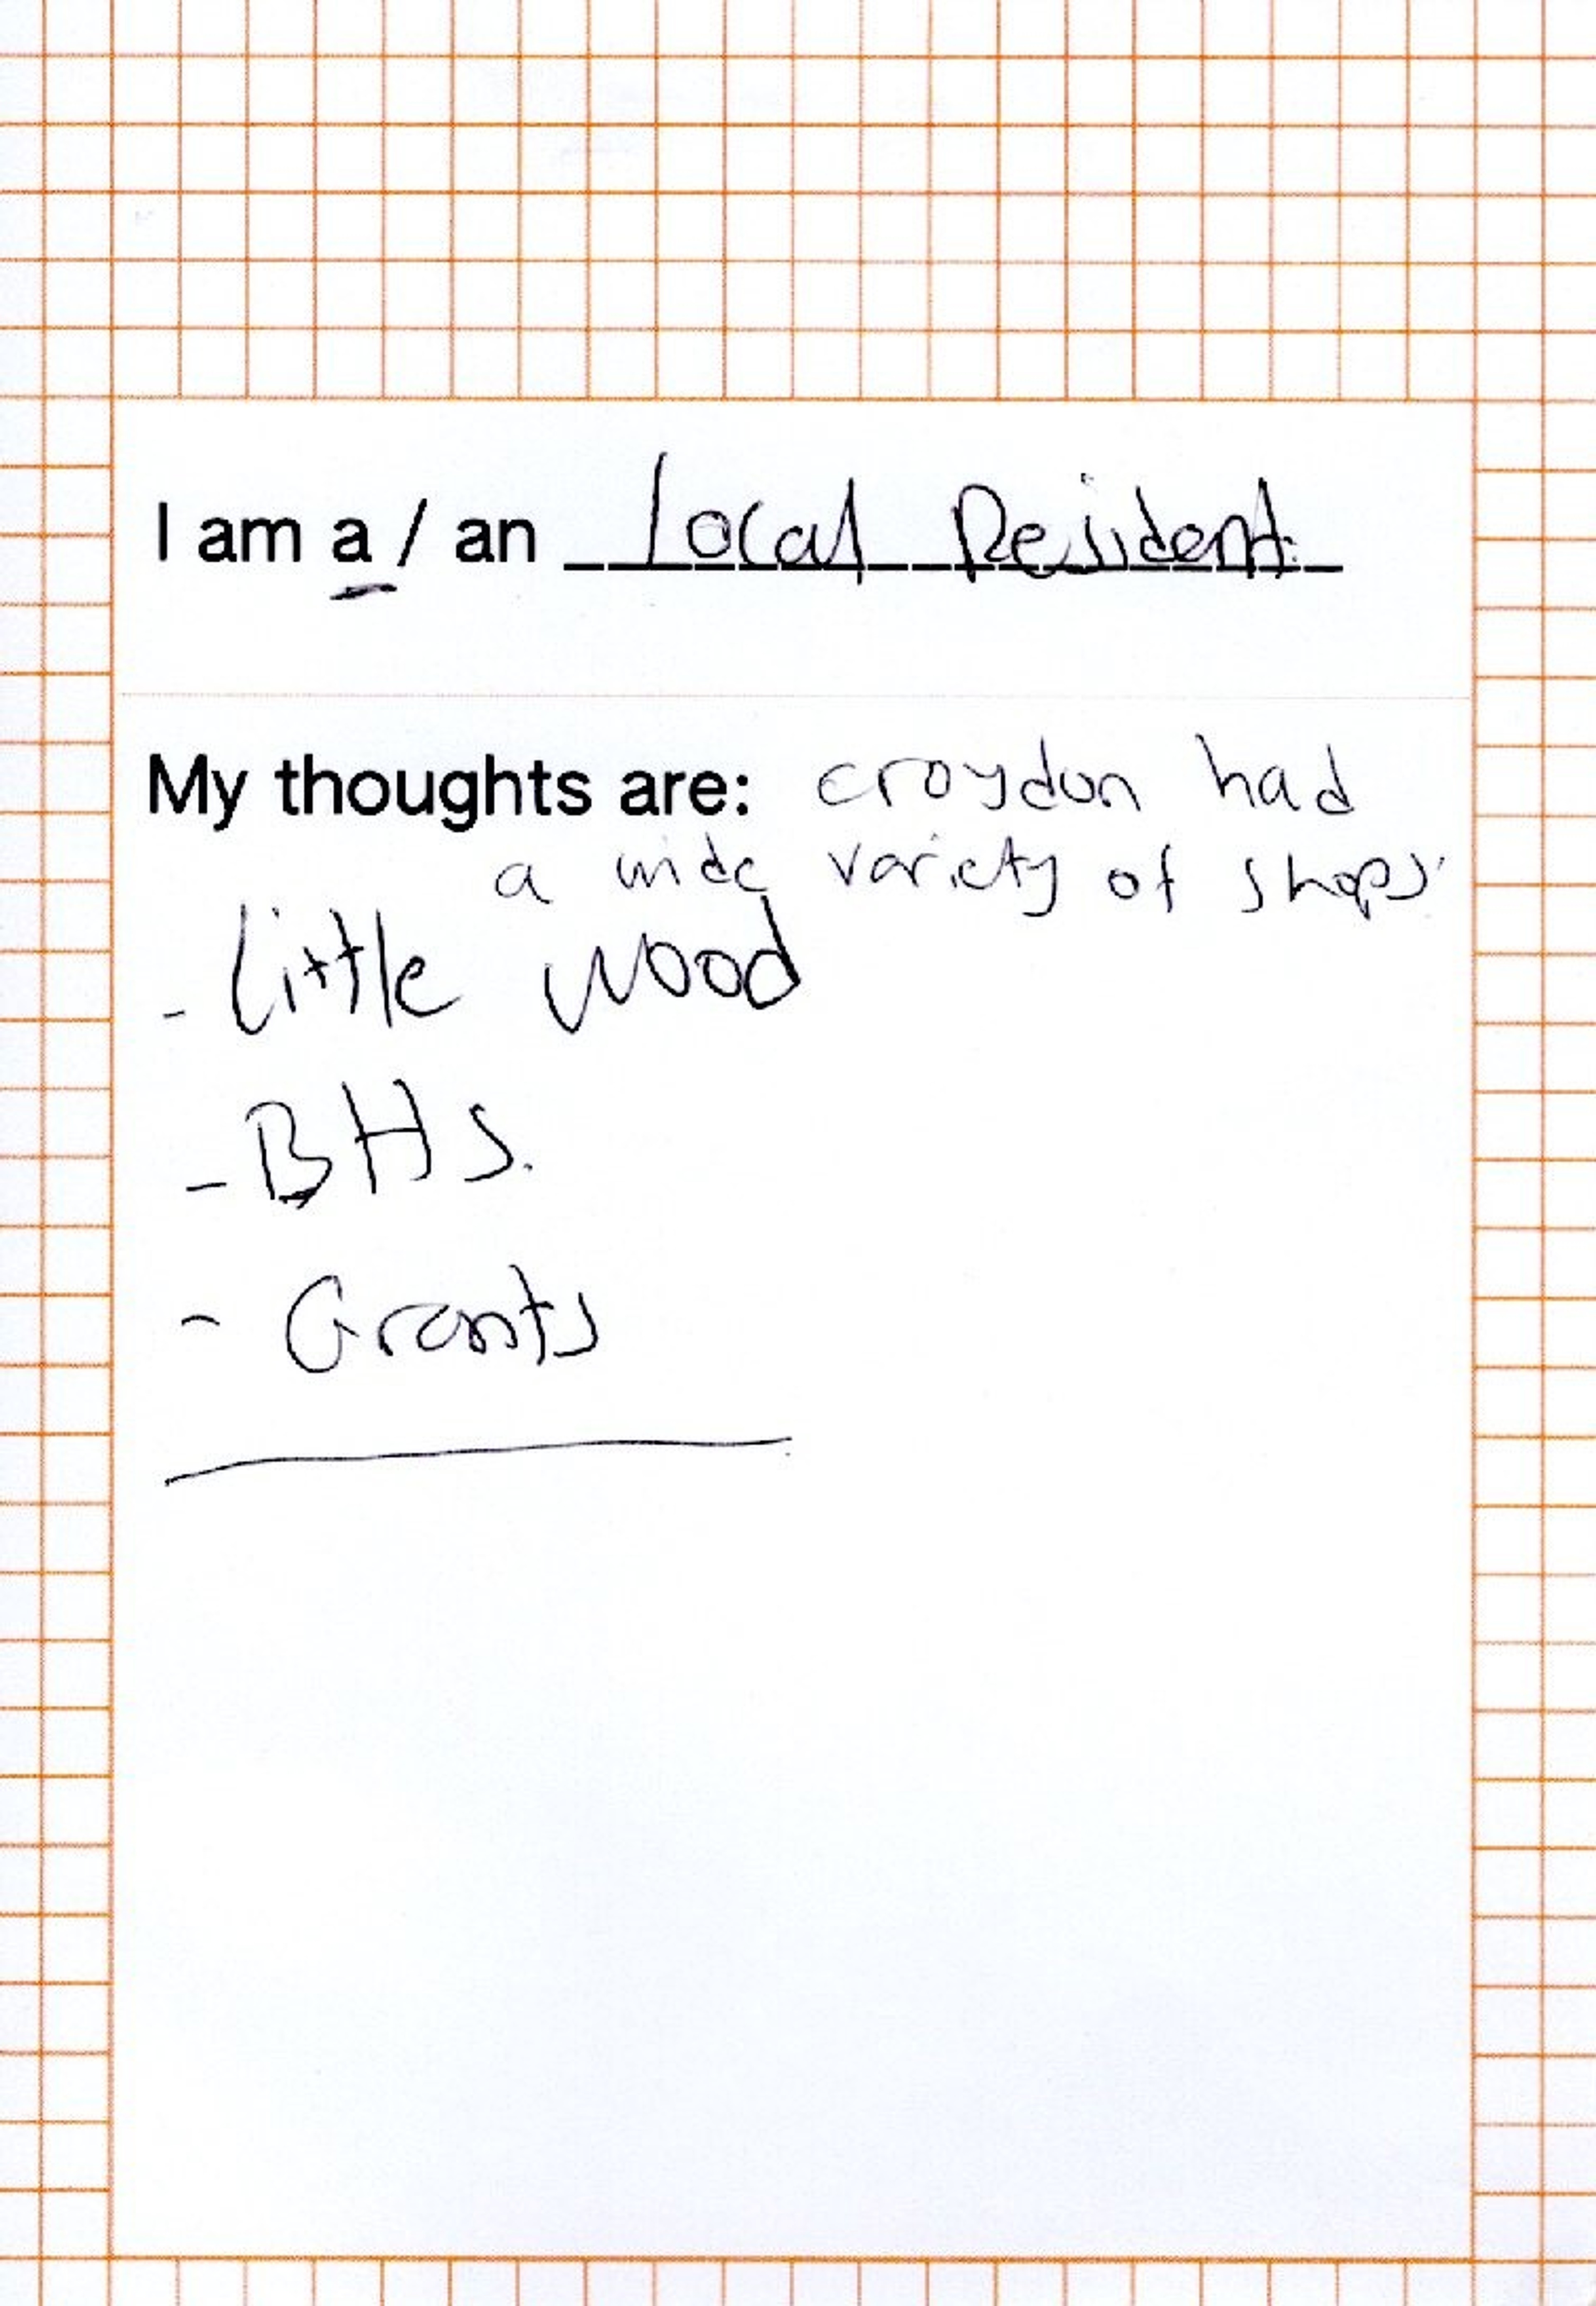 I am a / an local Resident
My thoughts are: croydon had
a wide variety of shops
- Little wood
- BHS.
- Grants